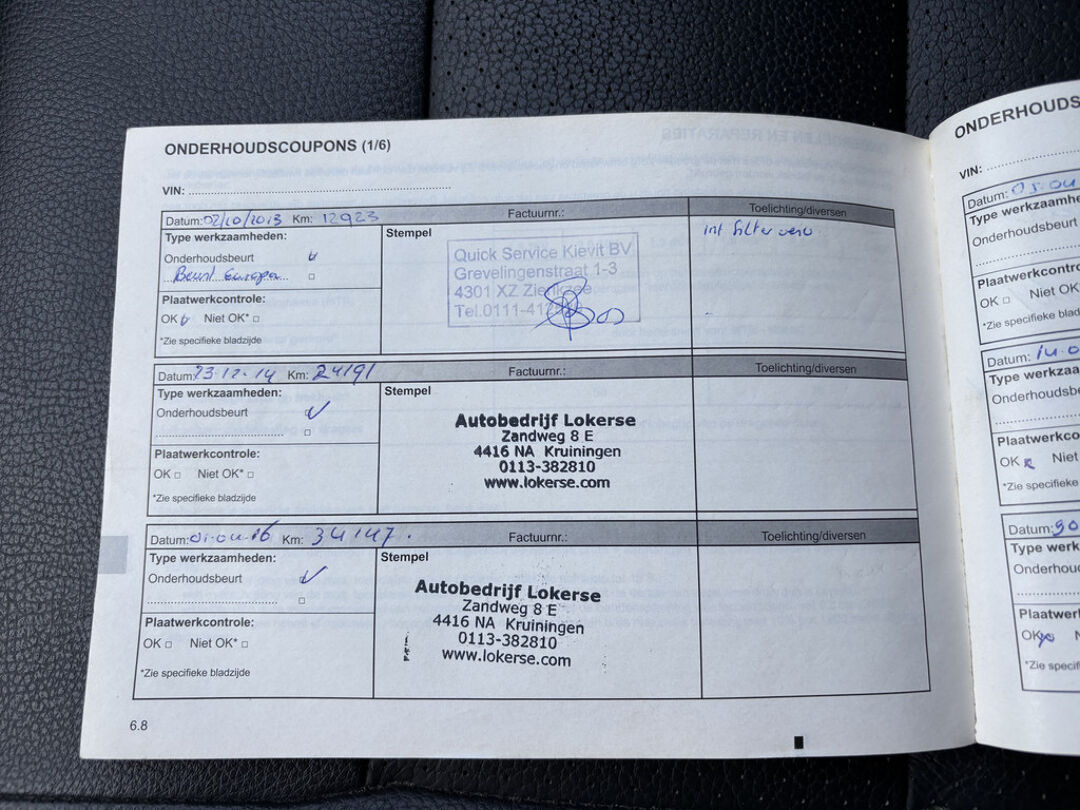 ONDERHOUDSCOUPONS (1/6)
VIN:
Datum: 02/10/2013 Km: 12923 Factuurnr.: Toelichting/diversen
Type werkzaamheden: Stempel
int filter verv
Onderhoudsbeurt
Beurt Europa
Plaatwerkcontrole:
OK Niet OK*
*Zie specifieke bladzijde
Quick Service Kievit BV
Grevelingenstraat 1-3
4301 XZ Zierikzee
Tel.0111-41
Datum: 23-12-14 Km: 24191 Factuurnr.: Toelichting/diversen
Type werkzaamheden: Stempel
Onderhoudsbeurt
Plaatwerkcontrole:
OK Niet OK*
*Zie specifieke bladzijde
Autobedrijf Lokerse
Zandweg 8 E
4416 NA Kruiningen
0113-382810
www.lokerse.com
Datum: 01-04-16 Km: 34147. Factuurnr.: Toelichting/diversen
Type werkzaamheden: Stempel
Onderhoudsbeurt
Plaatwerkcontrole:
OK Niet OK*
*Zie specifieke bladzijde
Autobedrijf Lokerse
Zandweg 8 E
4416 NA Kruiningen
0113-382810
www.lokerse.com
6.8
ONDERHOUDS
VIN:
Datum:
Type werkzaam
Onderhoudsbeurt
Plaatwerkcontro
OK Niet OK
*Zie specifieke blad
Datum:
Type werkzaa
Onderhoudsb
Plaatwerkco
OK Niet
*Zie specifieke
Datum:
Type werk
Onderhou
Plaatwer
OK N
*Zie specifi